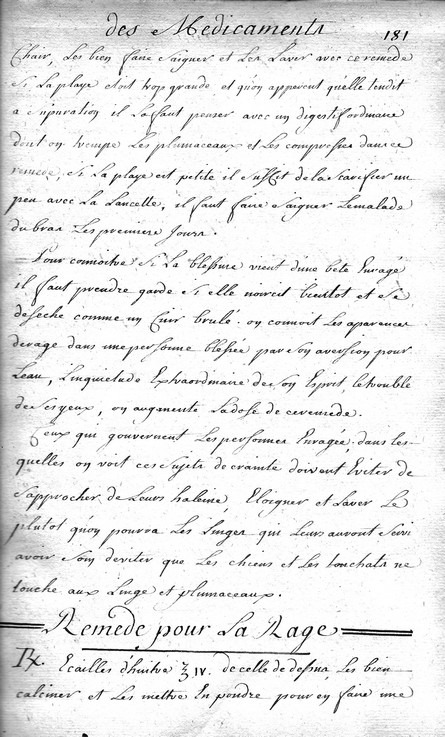 des Medicaments 181
Chair, Les bien faire Saigner et Les Laver avec ce remede
Si La playe etoit trop grande et qu'on apperçut qu'elle tendit
a Supuration il La faut penser avec un digestif ordinaire
dont on trempe Les plumaceaux et Les compresses dans ce
remede, Si La playe est petite il Suffit de la Scarifier un
peu avec La Lancette, il faut faire Saigner Le malade
du bras Les premiers Jours.
Pour connoitre Si La blessure vient d'une bete Enragé
il faut prendre garde Si elle noircit bientot et Se
deseche comme un Cuir brulé. on connoit Les aparances
de rage dans une personne blessée par Son aversion pour
Leau, L'inquietude Extraordinaire de Son Esprit, le trouble
de Ses yeux, on augmente La dose de ce remede.
Ceux qui gouvernent Les personnes Enragée, dans les-
quelles on voit ces Sujets de crainte doivent Eviter de
Sapprocher de Leurs haleine, Eloigner et Laver Le
plutot qu'on pourra Les Linges qui Leurs auront Servi
avoir Soin d'eviter que Les chiens et Les chats ne
touche aux Linge et plumaceaux.
Remede pour La Rage
Rx. Ecailles d'huitre ℥ IV. de celle de dessus, Les bien
calciner et Les mettre En poudre pour en faire une